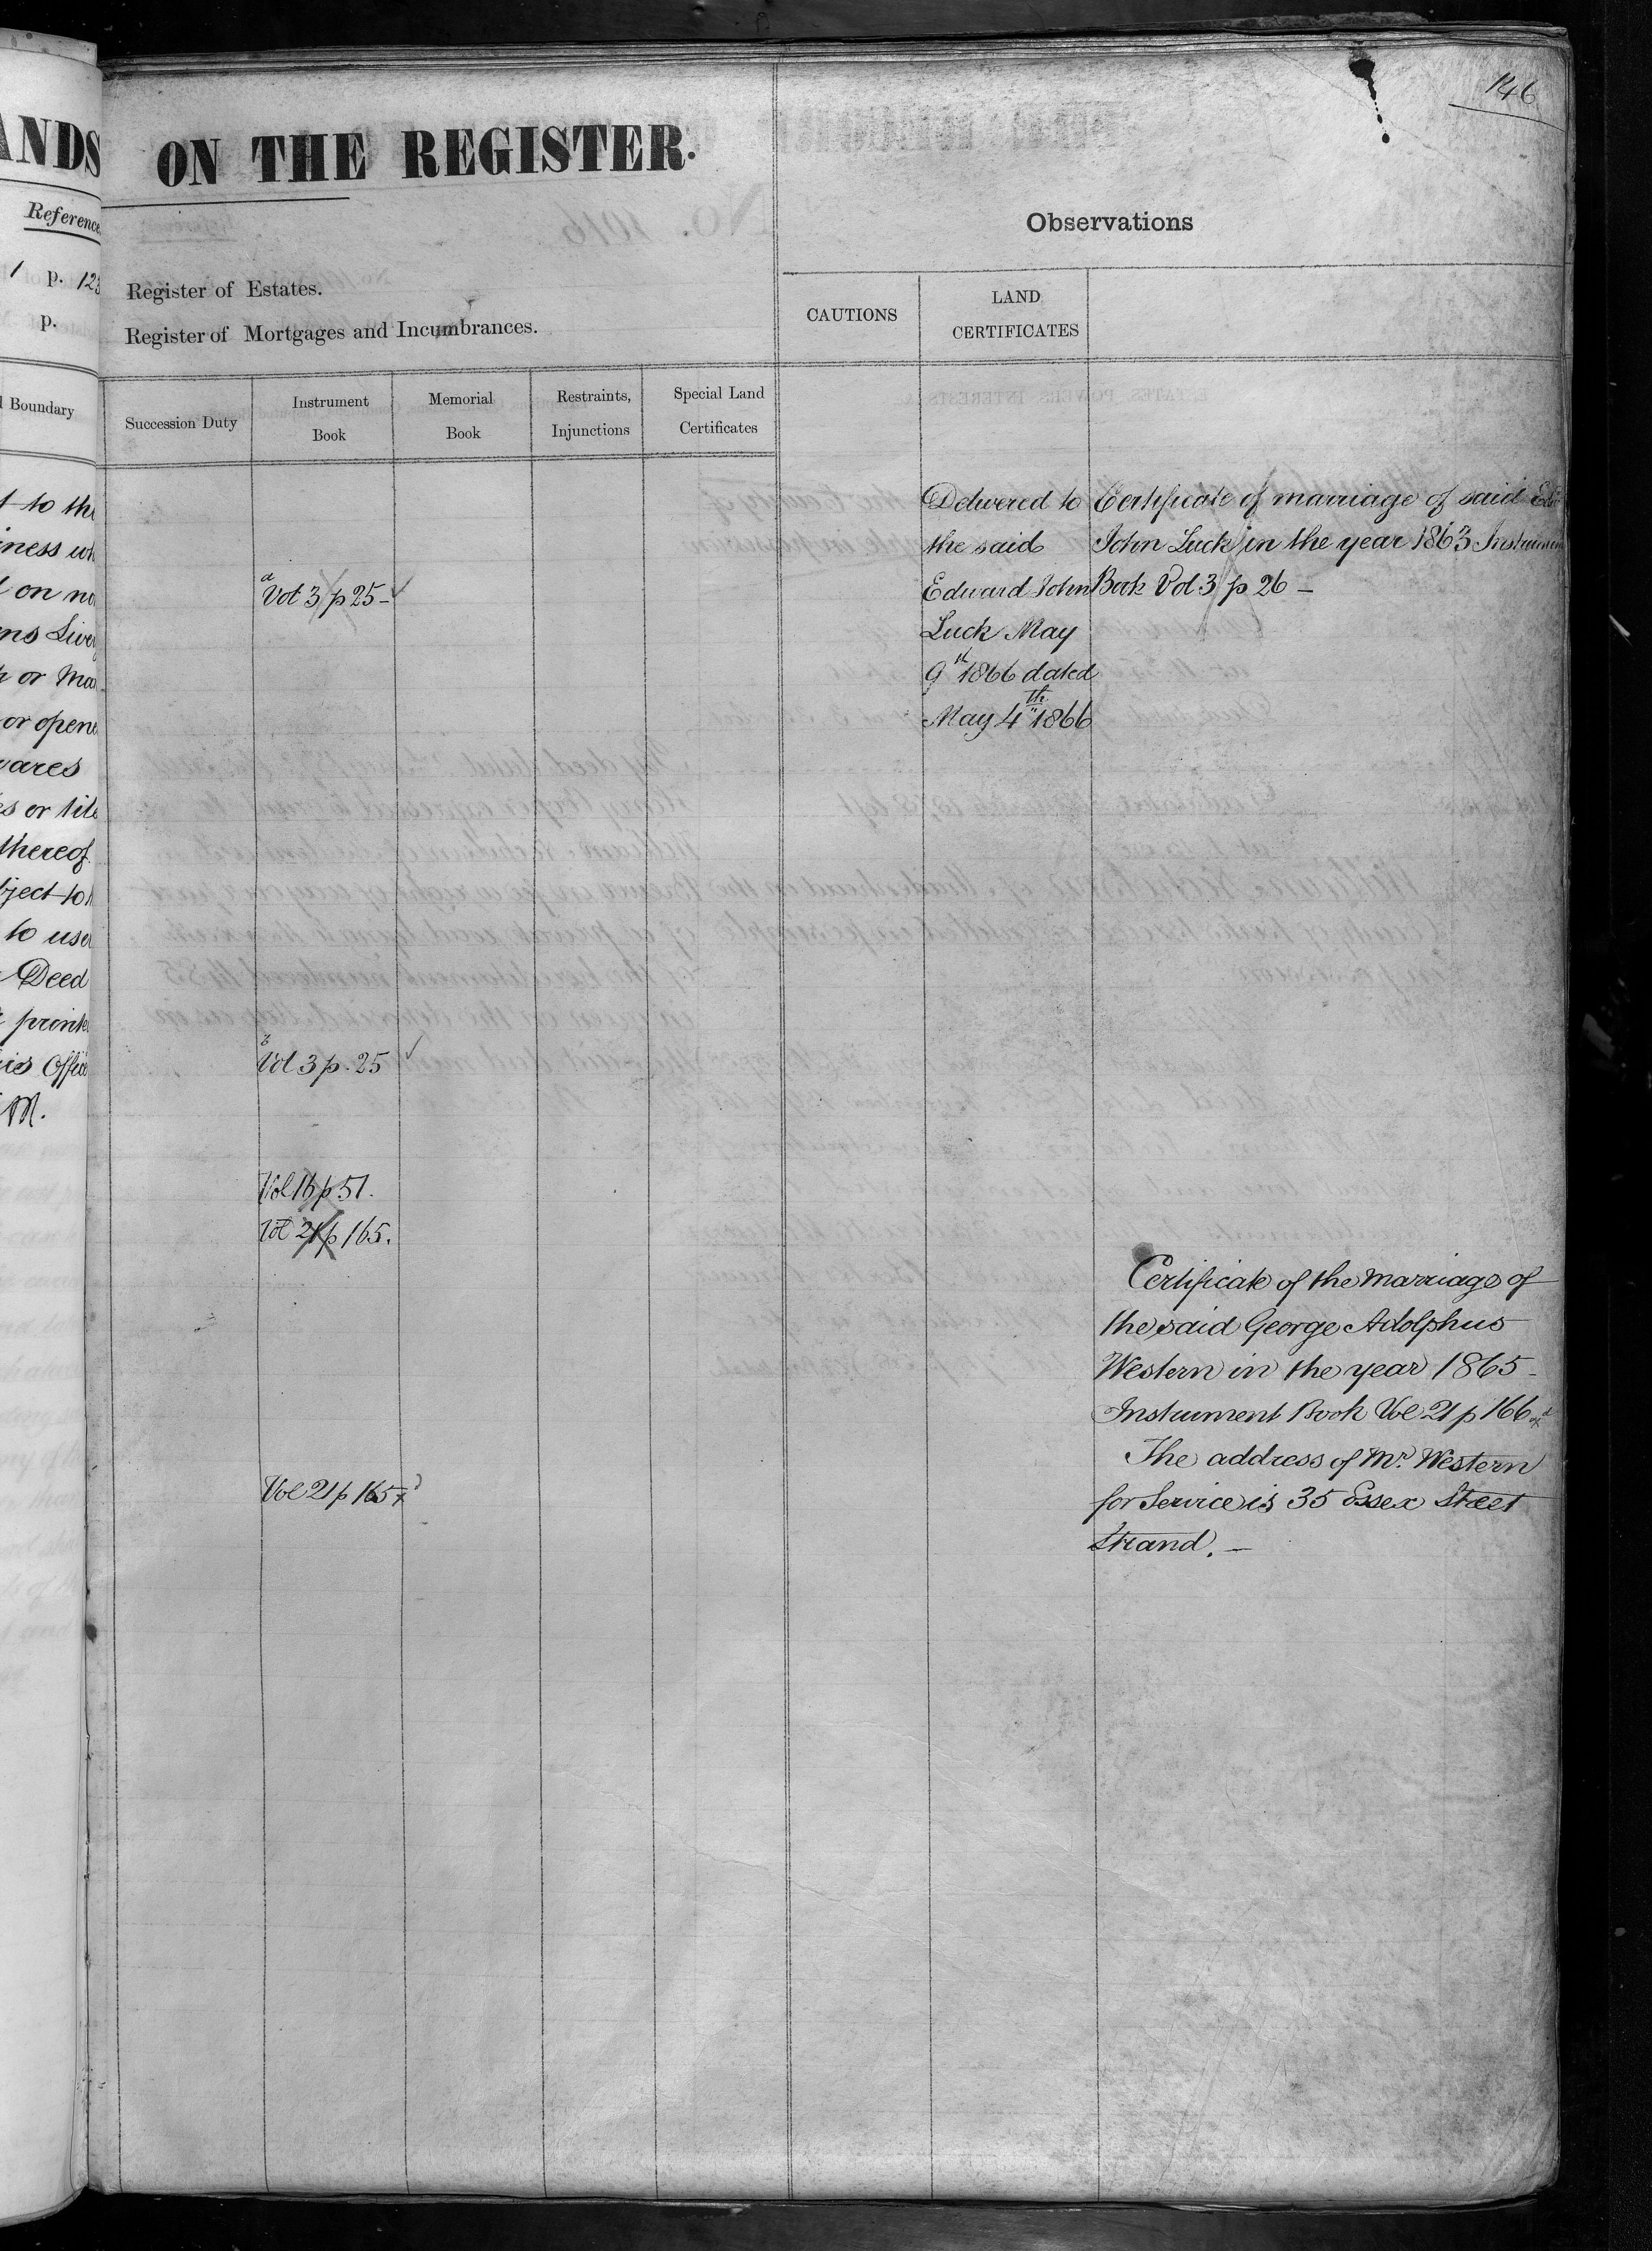 146
ANDS
ON THE REGISTER.
Reference
1 p. 123
p.
Register of Estates.
Register of Mortgages and Incumbrances.
Observations
CAUTIONS
LAND
CERTIFICATES
Boundary
Succession Duty
Instrument
Book
Memorial
Book
Restraints,
Injunctions
Special Land
Certificates
Delivered to
the said
Edward John
Luck May
9th 1866 dated
May 4th 1866
Certificate of marriage of said
John Luck in the year 1863
Book Vol 3 p 26 –
a
Vol 3 p 25 –
b
Vol 3 p. 25
Vol 16 p 51.
Vol 21 p 165.
Vol 21 p 165
Certificate of the marriage of
the said George Adolphus
Western in the year 1865 –
Instrument Book Vol 21 p 166
The address of Mr. Western
for Service is 35 Essex Street
Strand. –
to the
on
or
or
wares
or
thereof
to
to
Deed
Office
M.